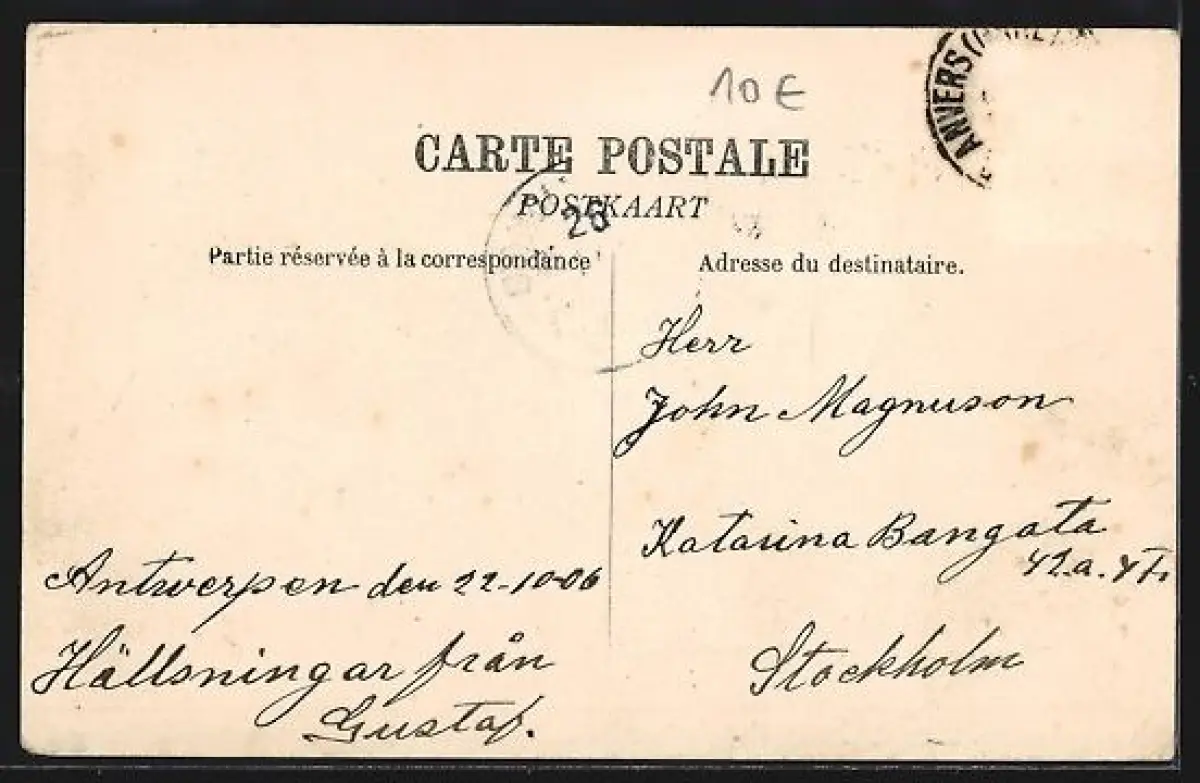 10 €
ANVERS
CARTE POSTALE
POSTKAART
25
Partie réservée à la correspondance
Adresse du destinataire.
Herr
John Magnuson
Katarina Bangata
42.a. 4 Tr
Stockholm
Antwerpen den 22-10-06
Hällsningar från
Gustaf.